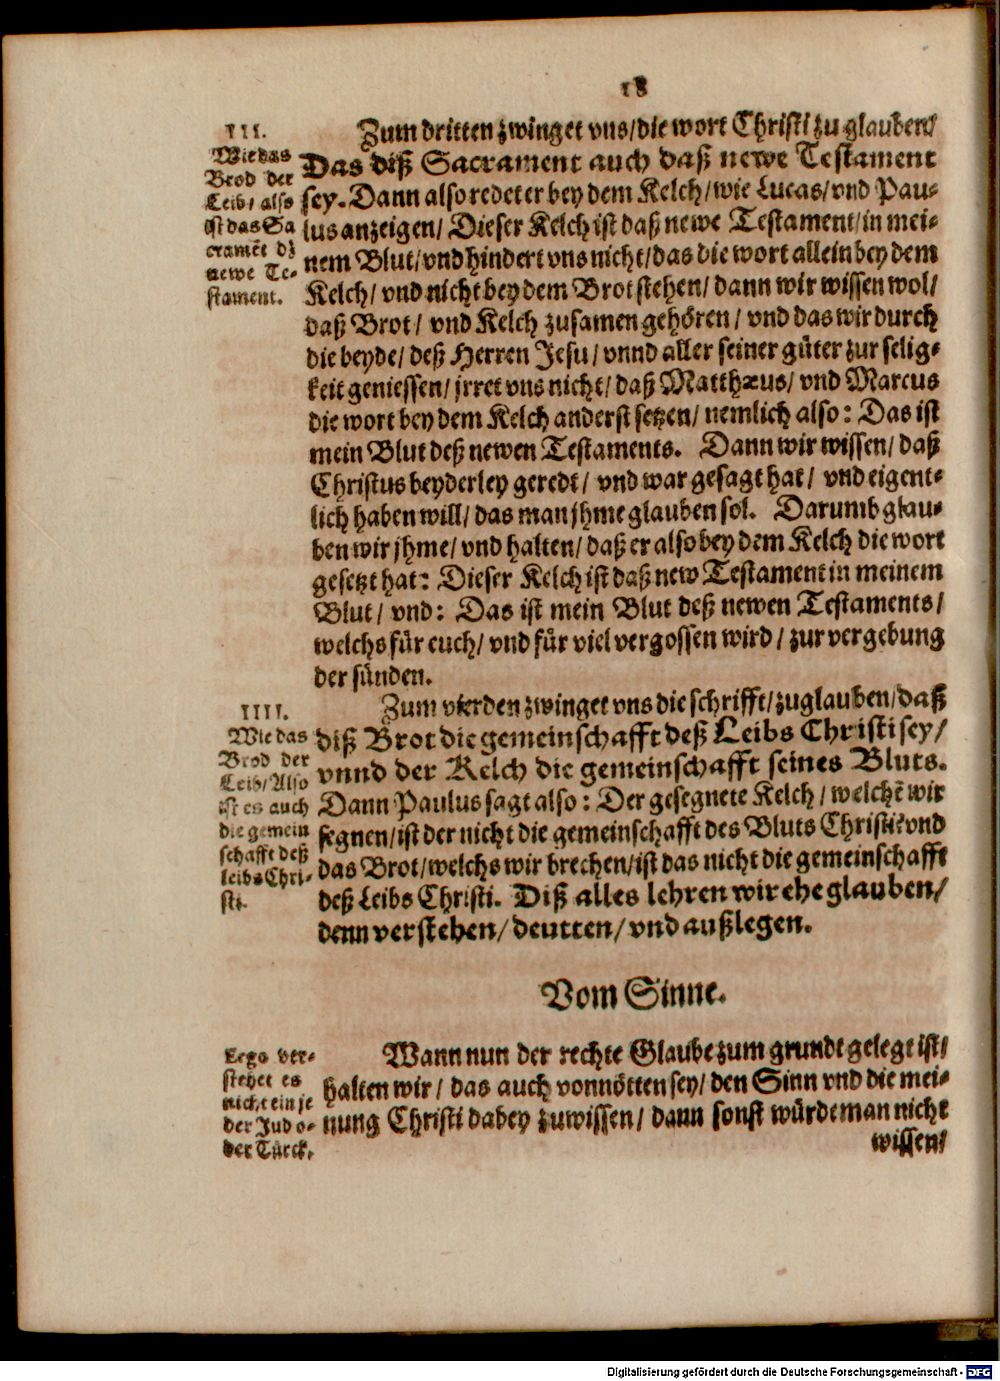 18
III.
Wie das
Brod der
Leib/ also
ist das Sa
cramēt dz
newe Te-
stament.
Zum dritten zwinget vns/die wort Christi zu glauben/
Das diß Sacrament auch daß newe Testament
sey. Dann also redet er bey dem Kelch/wie Lucas/vnd Pau-
lus anzeigen/ Dieser Kelch ist daß newe Testament/in mei-
nem Blut/vnd hindert vns nicht/das die wort allein bey dem
Kelch/ vnd nicht bey dem Brot stehen/ dann wir wissen wol/
daß Brot/ vnd Kelch zusamen gehören/ vnd das wir durch
die beyde/ deß Herren Jesu/ vnnd aller seiner güter zur selig-
keit geniessen/ jrret vns nicht/ daß Matthæus/ vnd Marcus
die wort bey dem Kelch anderst setzen/ nemlich also: Das ist
mein Blut deß newen Testaments. Dann wir wissen/ daß
Christus beyderley geredt/ vnd war gesagt hat/ vnd eigent-
lich haben will/ das man jhme glauben sol. Darumb glau-
ben wir jhme/ vnd halten/ daß er also bey dem Kelch die wort
gesetzt hat: Dieser Kelch ist daß new Testament in meinem
Blut/ vnd: Das ist mein Blut deß newen Testaments/
welchs für euch/ vnd für viel vergossen wird/ zur vergebung
der sünden.
IIII.
Wie das
Brod der
Leib/Also
ist es auch
die gemein
schafft deß
leibs Chri-
sti.
Zum vierden zwinget vns die schrifft/ zuglauben/ daß
diß Brot die gemeinschafft deß Leibs Christi sey/
vnnd der Kelch die gemeinschafft seines Bluts.
Dann Paulus sagt also: Der gesegnete Kelch/ welchē wir
segnen/ist der nicht die gemeinschafft des Bluts Christi? vnd
das Brot/welchs wir brechen/ist das nicht die gemeinschafft
deß Leibs Christi. Diß alles lehren wir ehe glauben/
denn verstehen/ deutten/ vnd außlegen.
Vom Sinne.
Ergo ver-
stehet es
nicht ein je
der Jud o-
der Türck.
Wann nun der rechte Glaube zum grundt gelegt ist/
halten wir/ das auch vonnötten sey/ den Sinn vnd die mei-
nung Christi dabey zuwissen/ dann sonst würde man nicht
wissen/
Digitalisierung gefördert durch die Deutsche Forschungsgemeinschaft - DFG